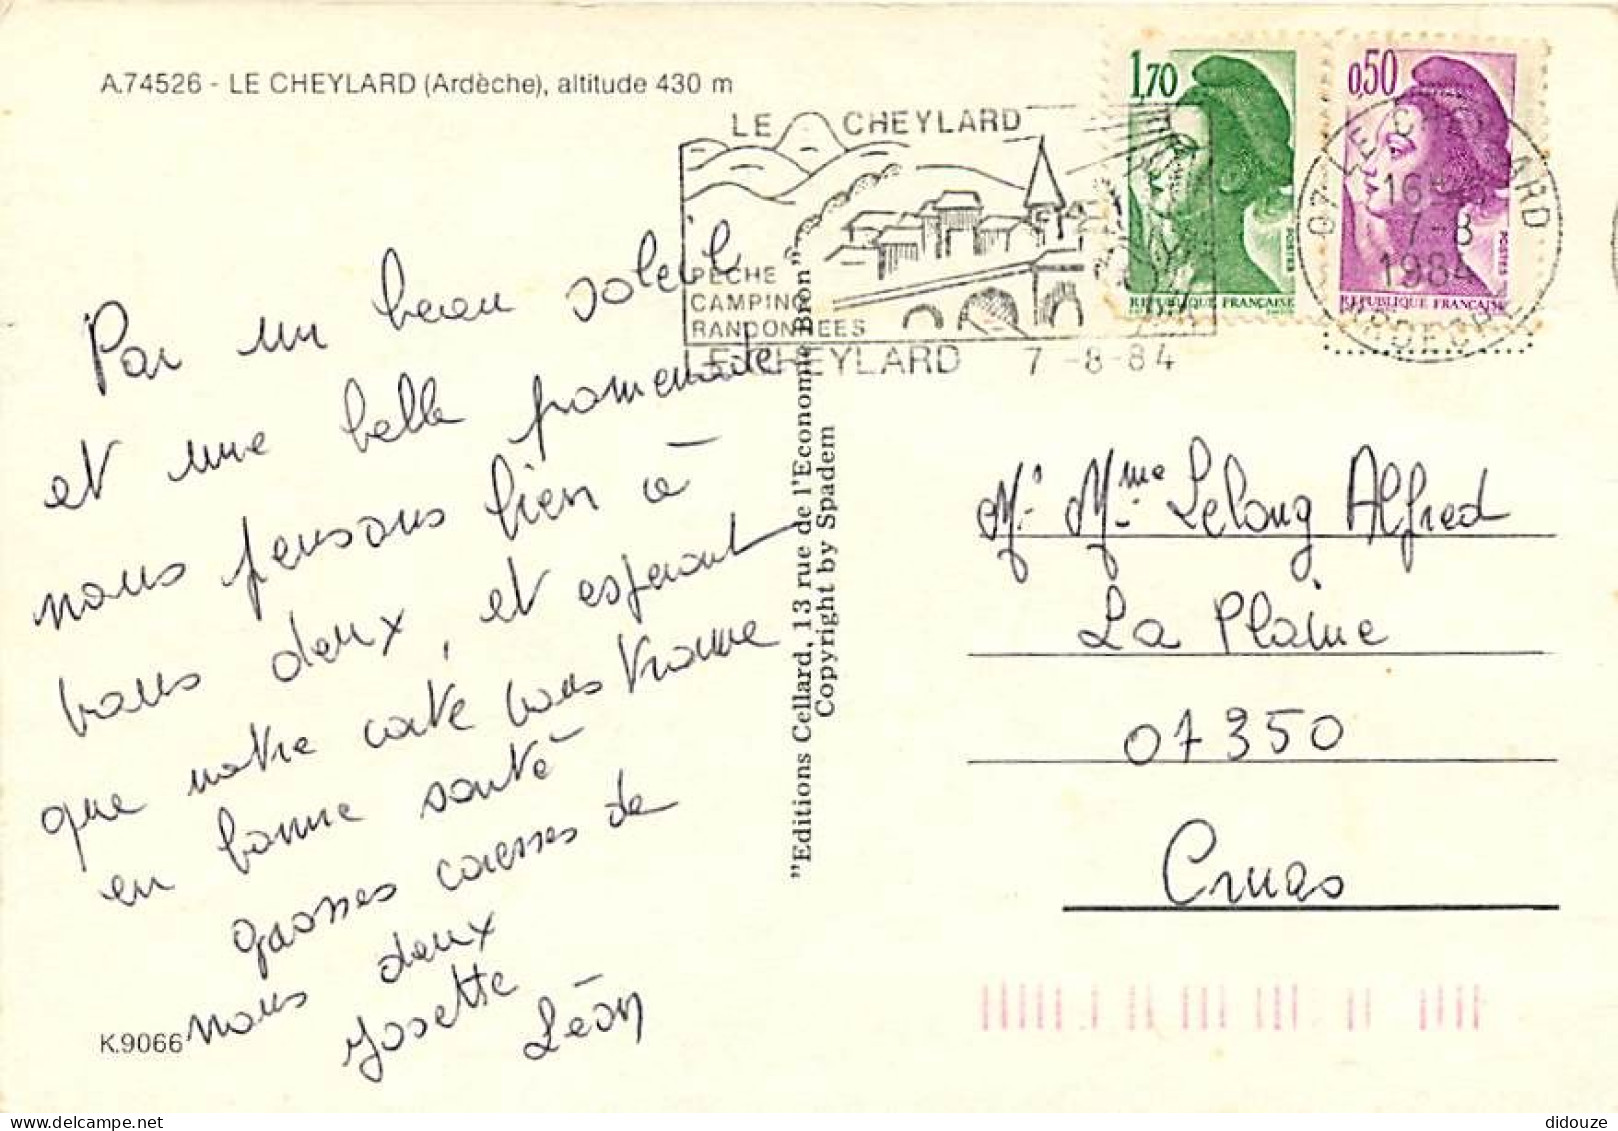 A.74526 - LE CHEYLARD (Ardèche), altitude 430 m
Par un beau soleil
et une belle promenade
nous pensons bien à
vous deux, et espérant
que notre carte vous trouve
en bonne santé
grosses caresses de
nous deux
Josette
Léon
K.9066
LE CHEYLARD
PECHE
CAMPING
RANDONNEES
LE CHEYLARD 7-8-84
1,70
POSTES
REPUBLIQUE FRANÇAISE
0,50
POSTES
REPUBLIQUE FRANÇAISE
07 LE CHEYLARD
16H
7-8
1984
ARDECHE
"Editions Cellard, 13 rue de l'Economie Bron"
Copyright by Spadem
Mr Mme Lelong Alfred
La Plaine
07350
Cruas
didouze